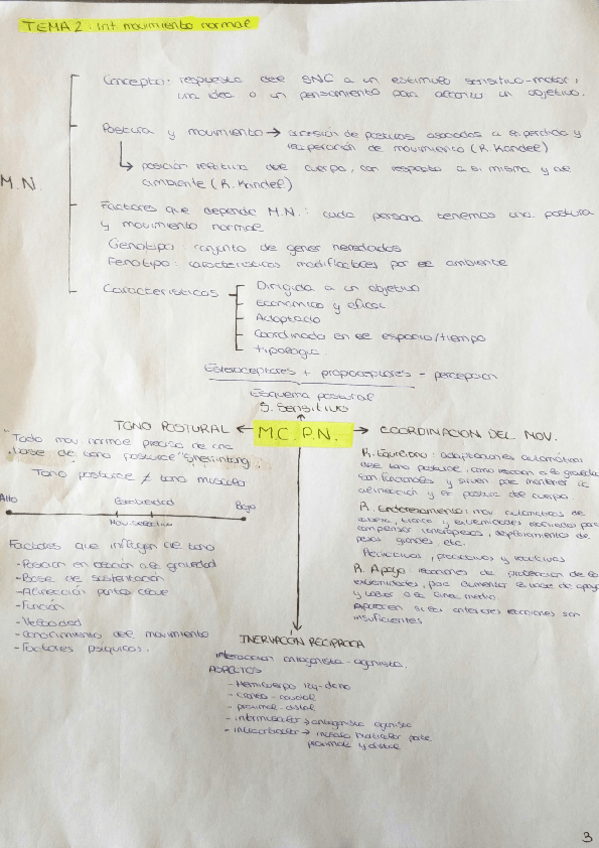 TEMA 2: Int movimiento normal
Concepto: respuesta del SNC a un estímulo sensitivo-motor,
una idea o un pensamiento para alcanzar un objetivo.
Postura y movimiento → sucesión de posturas asociadas a la pérdida y
recuperación de movimiento (R. Kandel)
posición relativa del cuerpo, con respecto a si misma y de
ambiente (R. Kandel)
M.N.
Factores que depende M.N.: cada persona tenemos una postura
y movimiento normal
Genotipo: conjunto de genes heredados
Fenotipo: características modificadores por el ambiente
Características
Dirigida a un objetivo
Económico y eficaz
Adaptado
Coordinado en el espacio/tiempo
tipología
Exteroceptores + propioceptores - percepcion
Esquema postural
S. Sensitivo
TONO POSTURAL ← M.C.P.N. → COORDINACION DEL MOV.
"Todo mov normal precisa de una
base de tono postural"
Tono postural ≠ tono muscular
Alto Bajo
Mov selectivo
Factores que influyen de tono
- Posición en relación a la gravedad
- Base de sustentación
- Alineación puntos clave
- Función
- Velocidad
- Conocimiento del movimiento
- Factores psíquicos.
R. Equilibrio: adaptaciones automáticas
del tono postural, como reacción a la gravedad
son funcionales y sirven para mantener la
alineación y la postura del cuerpo.
R. Enderezamiento: mov automáticos de
cabeza, tronco y extremidades para
compensar desplazamiento de
pesos grandes, etc.
R. Apoyo: reacciones de protección de las
extremidades, para aumentar la base de apoyo
y la línea media
Aparecen si las anteriores reacciones son
insuficientes
INERVACIÓN RECIPROCA
Interaccion antagonista-agonista.
ASPECTOS
- Hemicuerpo izq-dcho
- craneo-caudal
- proximal-distal
- intermuscular → antagonista agonista
- intramuscular → parte
proximal y distal
3